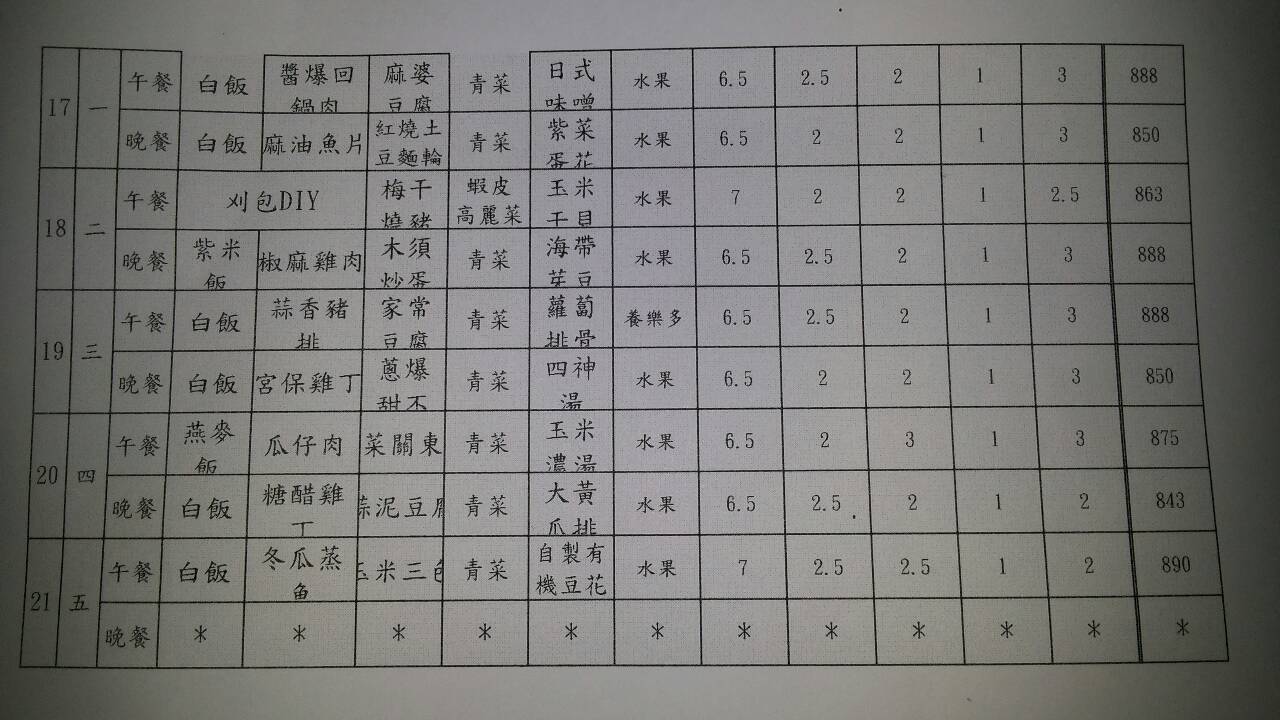 17 一 午餐 白飯 醬爆回鍋肉 麻婆豆腐 青菜 日式味噌 水果 6.5 2.5 2 1 3 888
晚餐 白飯 麻油魚片 紅燒土豆麵輪 青菜 紫菜蛋花 水果 6.5 2 2 1 3 850
18 二 午餐 刈包DIY 梅干燒豬 蝦皮高麗菜 玉米干貝 水果 7 2 2 1 2.5 863
晚餐 紫米飯 椒麻雞肉 木須炒蛋 青菜 海帶芽豆 水果 6.5 2.5 2 1 3 888
19 三 午餐 白飯 蒜香豬排 家常豆腐 青菜 蘿蔔排骨 養樂多 6.5 2.5 2 1 3 888
晚餐 白飯 宮保雞丁 蔥爆甜不 青菜 四神湯 水果 6.5 2 2 1 3 850
20 四 午餐 燕麥飯 瓜仔肉 菜關東 青菜 玉米濃湯 水果 6.5 2 3 1 3 875
晚餐 白飯 糖醋雞丁 蒜泥豆腐 青菜 大黃瓜排 水果 6.5 2.5 2 1 2 843
21 五 午餐 白飯 冬瓜蒸魚 玉米三色 青菜 自製有機豆花 水果 7 2.5 2.5 1 2 890
晚餐 * * * * * * * * * * * *